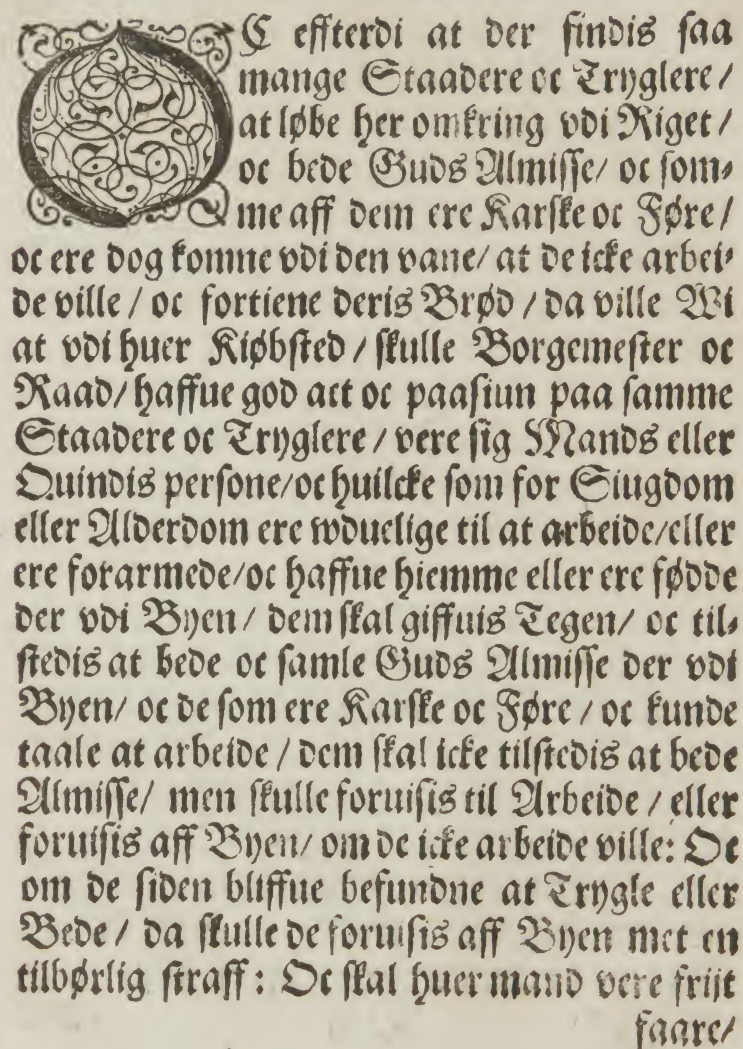 OC effterdi at der findis saa
mange Staadere oc Tryglere/
at løbe her omkring vdi Riget/
oc bede Guds Almisse/ oc som⸗
me aff dem ere Karske oc Føre/
oc ere dog komne vdi den vane/ at de icke arbei⸗
de ville/ oc fortiene deris Brød/ da ville Wi
at vdi huer Kiøbsted/ skulle Borgemester oc
Raad/ haffue god act oc paasiun paa samme
Staadere oc Tryglere/ vere sig Mands eller
Quindis persone/ oc huilcke som for Siugdom
eller Alderdom ere wduelige til at arbeide/ eller
ere forarmede/ oc haffue hiemme eller ere fødde
der vdi Byen/ dem skal giffuis Tegen/ oc til⸗
stedis at bede oc samle Guds Almisse der vdi
Byen/ oc de som ere Karske oc Føre/ oc kunde
taale at arbeide/ dem skal icke tilstedis at bede
Almisse/ men skulle foruisis til Arbeide/ eller
foruisis aff Byen/ om de icke arbeide ville: Oc
om de siden bliffue befundne at Trygle eller
Bede/ da skulle de foruisis aff Byen met en
tilbørlig straff: Oc skal huer mand vere frijt
faare/